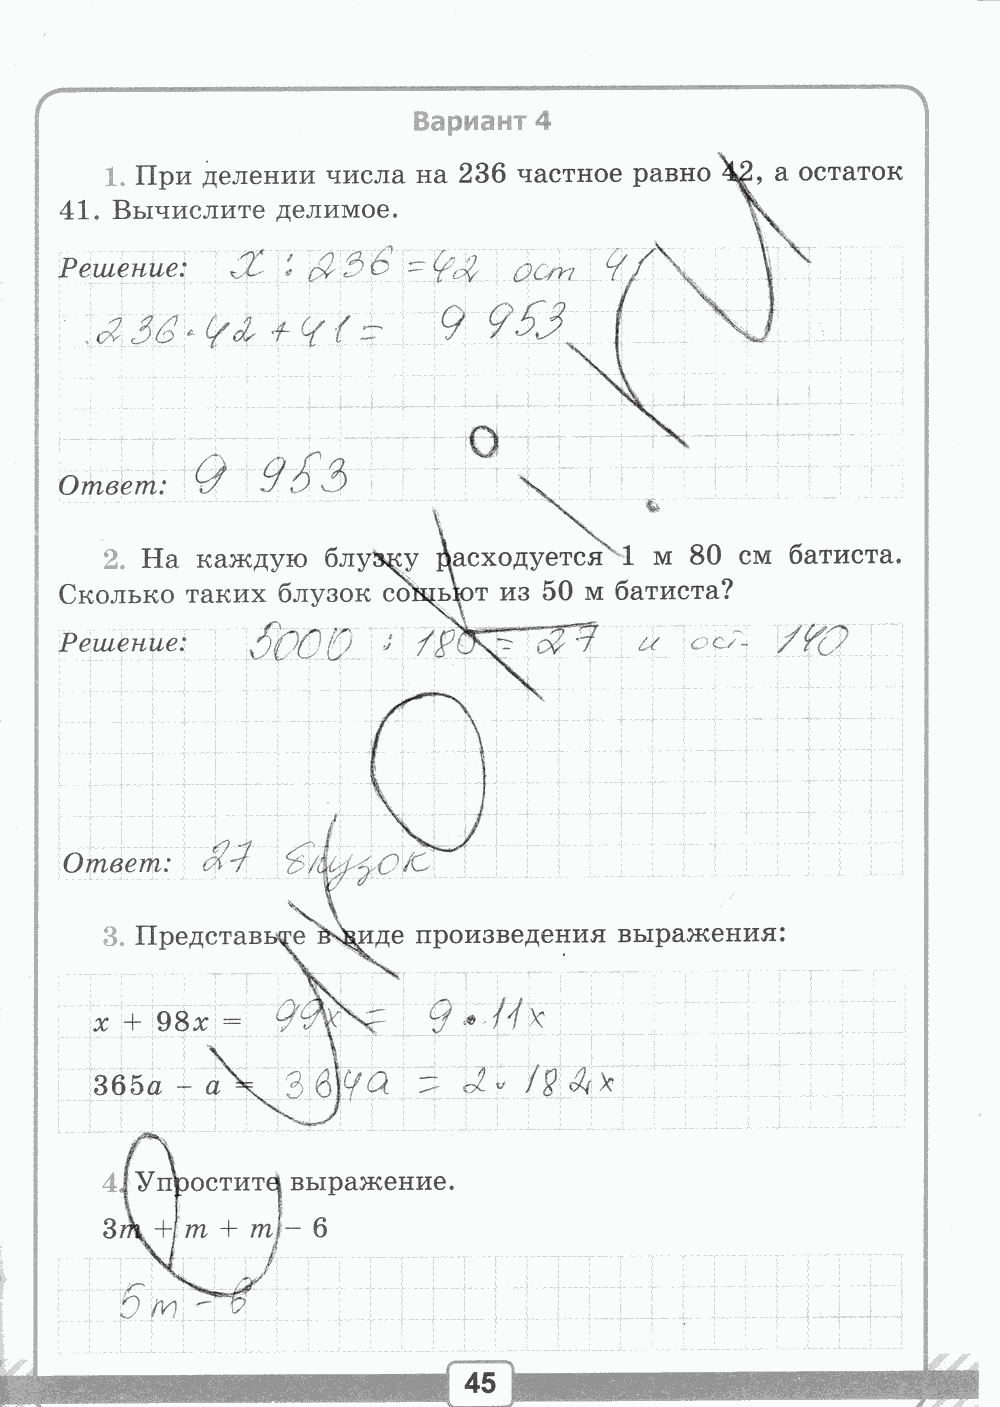 Вариант 4
1. При делении числа на 236 частное равно 42, а остаток
41. Вычислите делимое.
Решение: x : 236 = 42 ост 41
236 · 42 + 41 = 9 953
Ответ: 9 953
2. На каждую блузку расходуется 1 м 80 см батиста.
Сколько таких блузок сошьют из 50 м батиста?
Решение: 5000 : 180 = 27 и ост. 140
Ответ: 27 блузок
3. Представьте в виде произведения выражения:
x + 98x = 99x = 9 · 11x
365a − a = 364a = 2 · 182x
4. Упростите выражение.
3m + m + m − 6
5m − 6
45